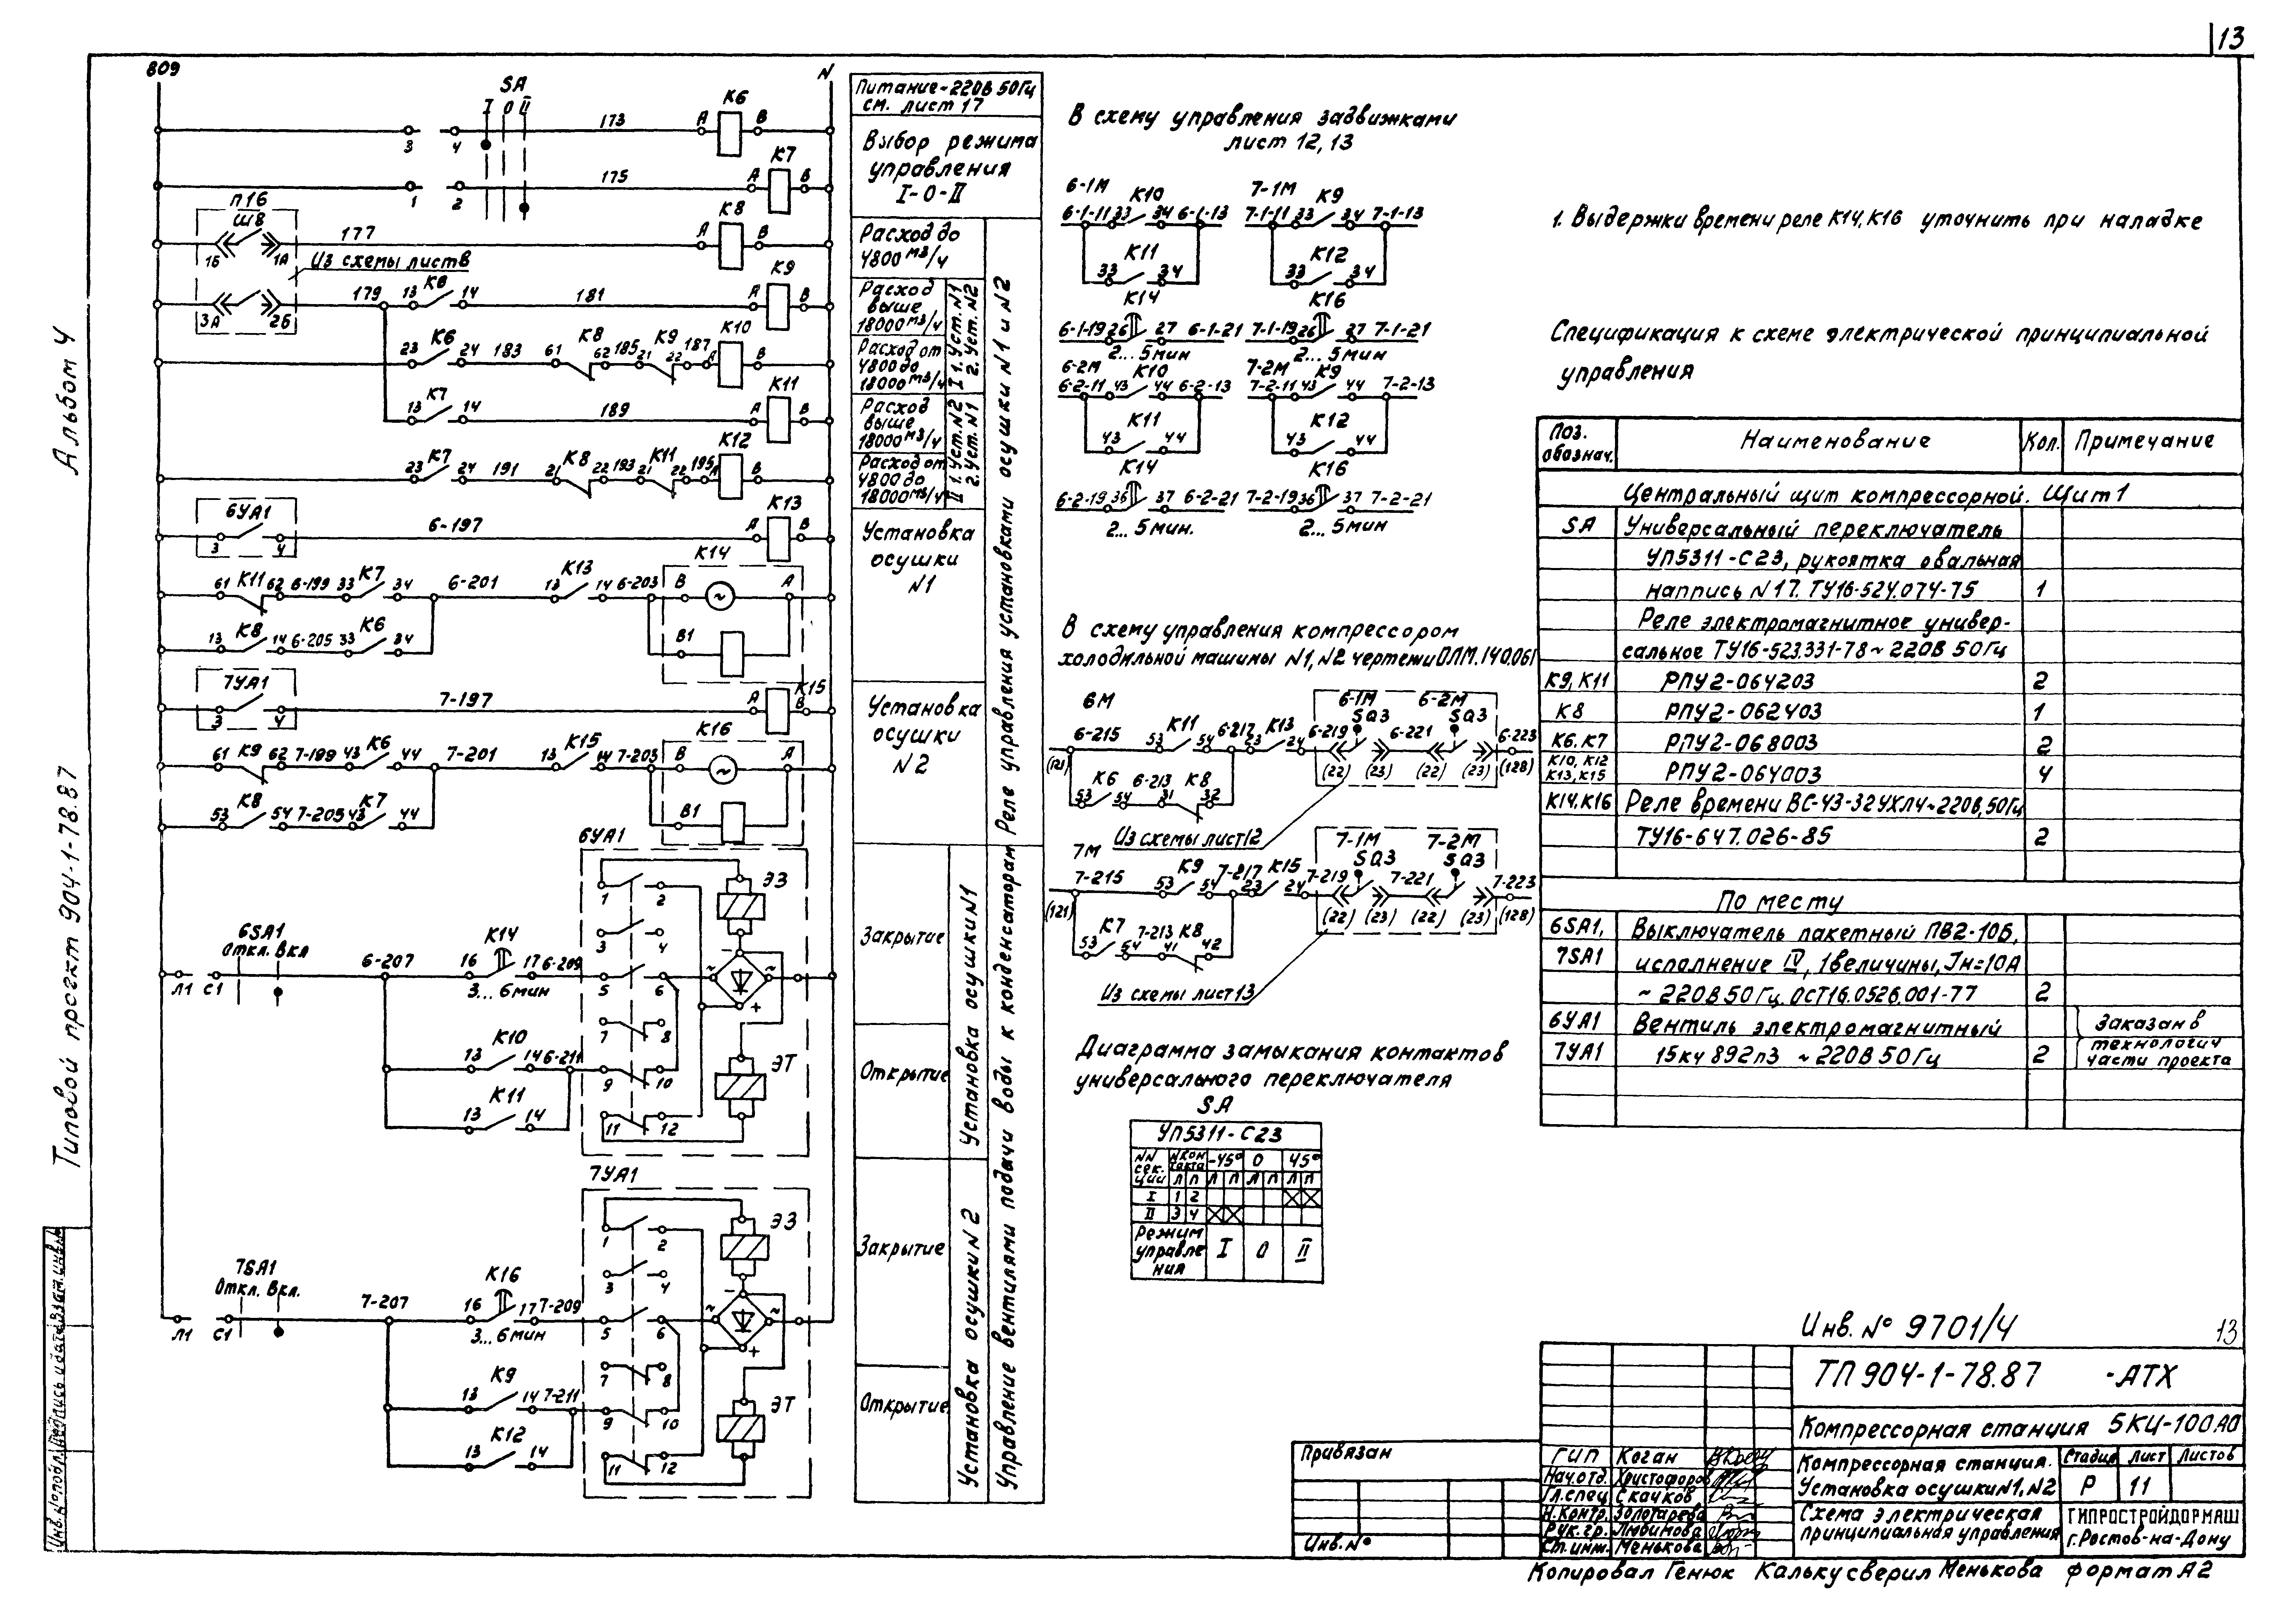 13
Альбом 4
Типовой проект 904-1-78.87
Инв.№подл. Подпись и дата Взам.инв.№
809
N
SA
I 0 II
3 4 173 А К6 В
1 2 175 А К7 В
П16
Ш8
1Б 1А 177 А К8 В
Из схемы лист 8
3А 2Б 179 13 К6 14 181 А К9 В
23 К6 24 183 61 К8 62 185 21 К9 22 187 А К10 В
13 К7 14 189 А К11 В
23 К7 24 191 21 К8 22 193 21 К11 22 195 А К12 В
6УА1
3 4 6-197 А К13 В
61 К11 62 6-199 33 К7 34 6-201 13 К13 14 6-203 В К14 А
~
13 К8 14 6-205 33 К6 34 В1
7УА1
3 4 7-197 А К15 В
61 К9 62 7-199 43 К6 44 7-201 13 К15 14 7-203 В К16 А
~
53 К8 54 7-205 43 К7 44 В1
6УА1
1 2 ЭЗ
3 4
6SA1
Откл. Вкл
Л1 С1 6-207 16 К14 17 6-209 5 6 ~ ~ - +
3... 6мин
7 8
13 К10 14 6-211 9 10 ЭТ
13 К11 14 11 12
7УА1
1 2 ЭЗ
3 4
7SA1
Откл. Вкл.
Л1 С1 7-207 16 К16 17 7-209 5 6 ~ ~ - +
3... 6мин
7 8
13 К9 14 7-211 9 10 ЭТ
13 К12 14 11 12
Питание~220В 50Гц
см. лист 17
Выбор режима
управления
I-0-II
Расход до
4800 м3/ч
Расход
выше
18000м3/ч
Расход от
4800 до
18000м3/ч
I 1. Уст. N1
2. Уст. N2
Расход
выше
18000м3/ч
Расход от
4800 до
18000м3/ч
II 1. Уст. N2
2. Уст. N1
Установка
осушки
N1
Установка
осушки
N2
Реле управления установками осушки N1 и N2
Закрытие
Открытие
Установка осушки N1
Закрытие
Открытие
Установка осушки N2
Управление вентилями подачи воды к конденсаторам
В схему управления задвижками
лист 12,13
6-1М К10 7-1М К9
6-1-11 33 34 6-1-13 7-1-11 33 34 7-1-13
К11 К12
33 34 33 34
К14 К16
6-1-19 26 27 6-1-21 7-1-19 26 27 7-1-21
2... 5мин 2... 5мин
6-2М К10 7-2М К9
6-2-11 43 44 6-2-13 7-2-11 43 44 7-2-13
К11 К12
43 44 43 44
К14 К16
6-2-19 36 37 6-2-21 7-2-19 36 37 7-2-21
2... 5мин. 2... 5мин
В схему управления компрессором
холодильной машины N1,N2 чертежи ОЛМ.140.061
6М 6-1М 6-2М
SQ3 SQ3
6-215 53 К11 54 6-217 23 К13 24 6-219 6-221 6-223
(121) (22) (23) (22) (23) (128)
53 К6 54 6-213 31 К8 32
Из схемы лист12
7М 7-1М 7-2М
SQ3 SQ3
7-215 53 К9 54 7-217 23 К15 24 7-219 7-221 7-223
(121) (22) (23) (22) (23) (128)
53 К7 54 7-213 41 К8 42
Из схемы лист13
Диаграмма замыкания контактов
универсального переключателя
SA
УП5311-С23
NN секции N контакта -45° 0 45°
Л П Л П Л П Л П
I 1 2
II 3 4
Режим управления I 0 II
1. Выдержки времени реле К14,К16 уточнить при наладке
Спецификация к схеме электрической принципиальной
управления
Поз. обознач. Наименование Кол. Примечание
Центральный щит компрессорной. Щит 1
SA Универсальный переключатель
УП5311-С23, рукоятка овальная
надпись N17. ТУ16-524.074-75 1
Реле электромагнитное универ-
сальное ТУ16-523.331-78 ~ 220В 50Гц
К9,К11 РПУ2-064203 2
К8 РПУ2-062403 1
К6.К7 РПУ2-068003 2
К10, К12
К13,К15 РПУ2-064003 4
К14.К16 Реле времени ВС-43-32УХЛ4~220В,50Гц
ТУ16-647.026-85 2
По месту
6SA1, Выключатель пакетный ПВ2-10Б,
7SA1 исполнение IV, 1величины, Iн=10А
~ 220В 50Гц. ОСТ16.0526.001-77 2
6УА1 Вентиль электромагнитный Заказан в
7УА1 15кч 892п3 ~ 220В 50Гц 2 технологич
части проекта
Инв. № 9701/4 13
ТП 904-1-78.87 -АТХ
Компрессорная станция 5КЦ-100.А0
Компрессорная станция.
Установка осушки N1,N2
Стадия Лист Листов
Р 11
Схема электрическая
принципиальная управления
ГИПРОСТРОЙДОРМАШ
г.Ростов-на-Дону
ГИП Коган
Нач.отд. Христофоров
Гл.спец Скачков
Н.контр. Золотарева
Рук.гр. Любимова
Ст.инж. Менькова
Привязан
Инв.№
Копировал Генюк Кальку сверил Менькова формат А2